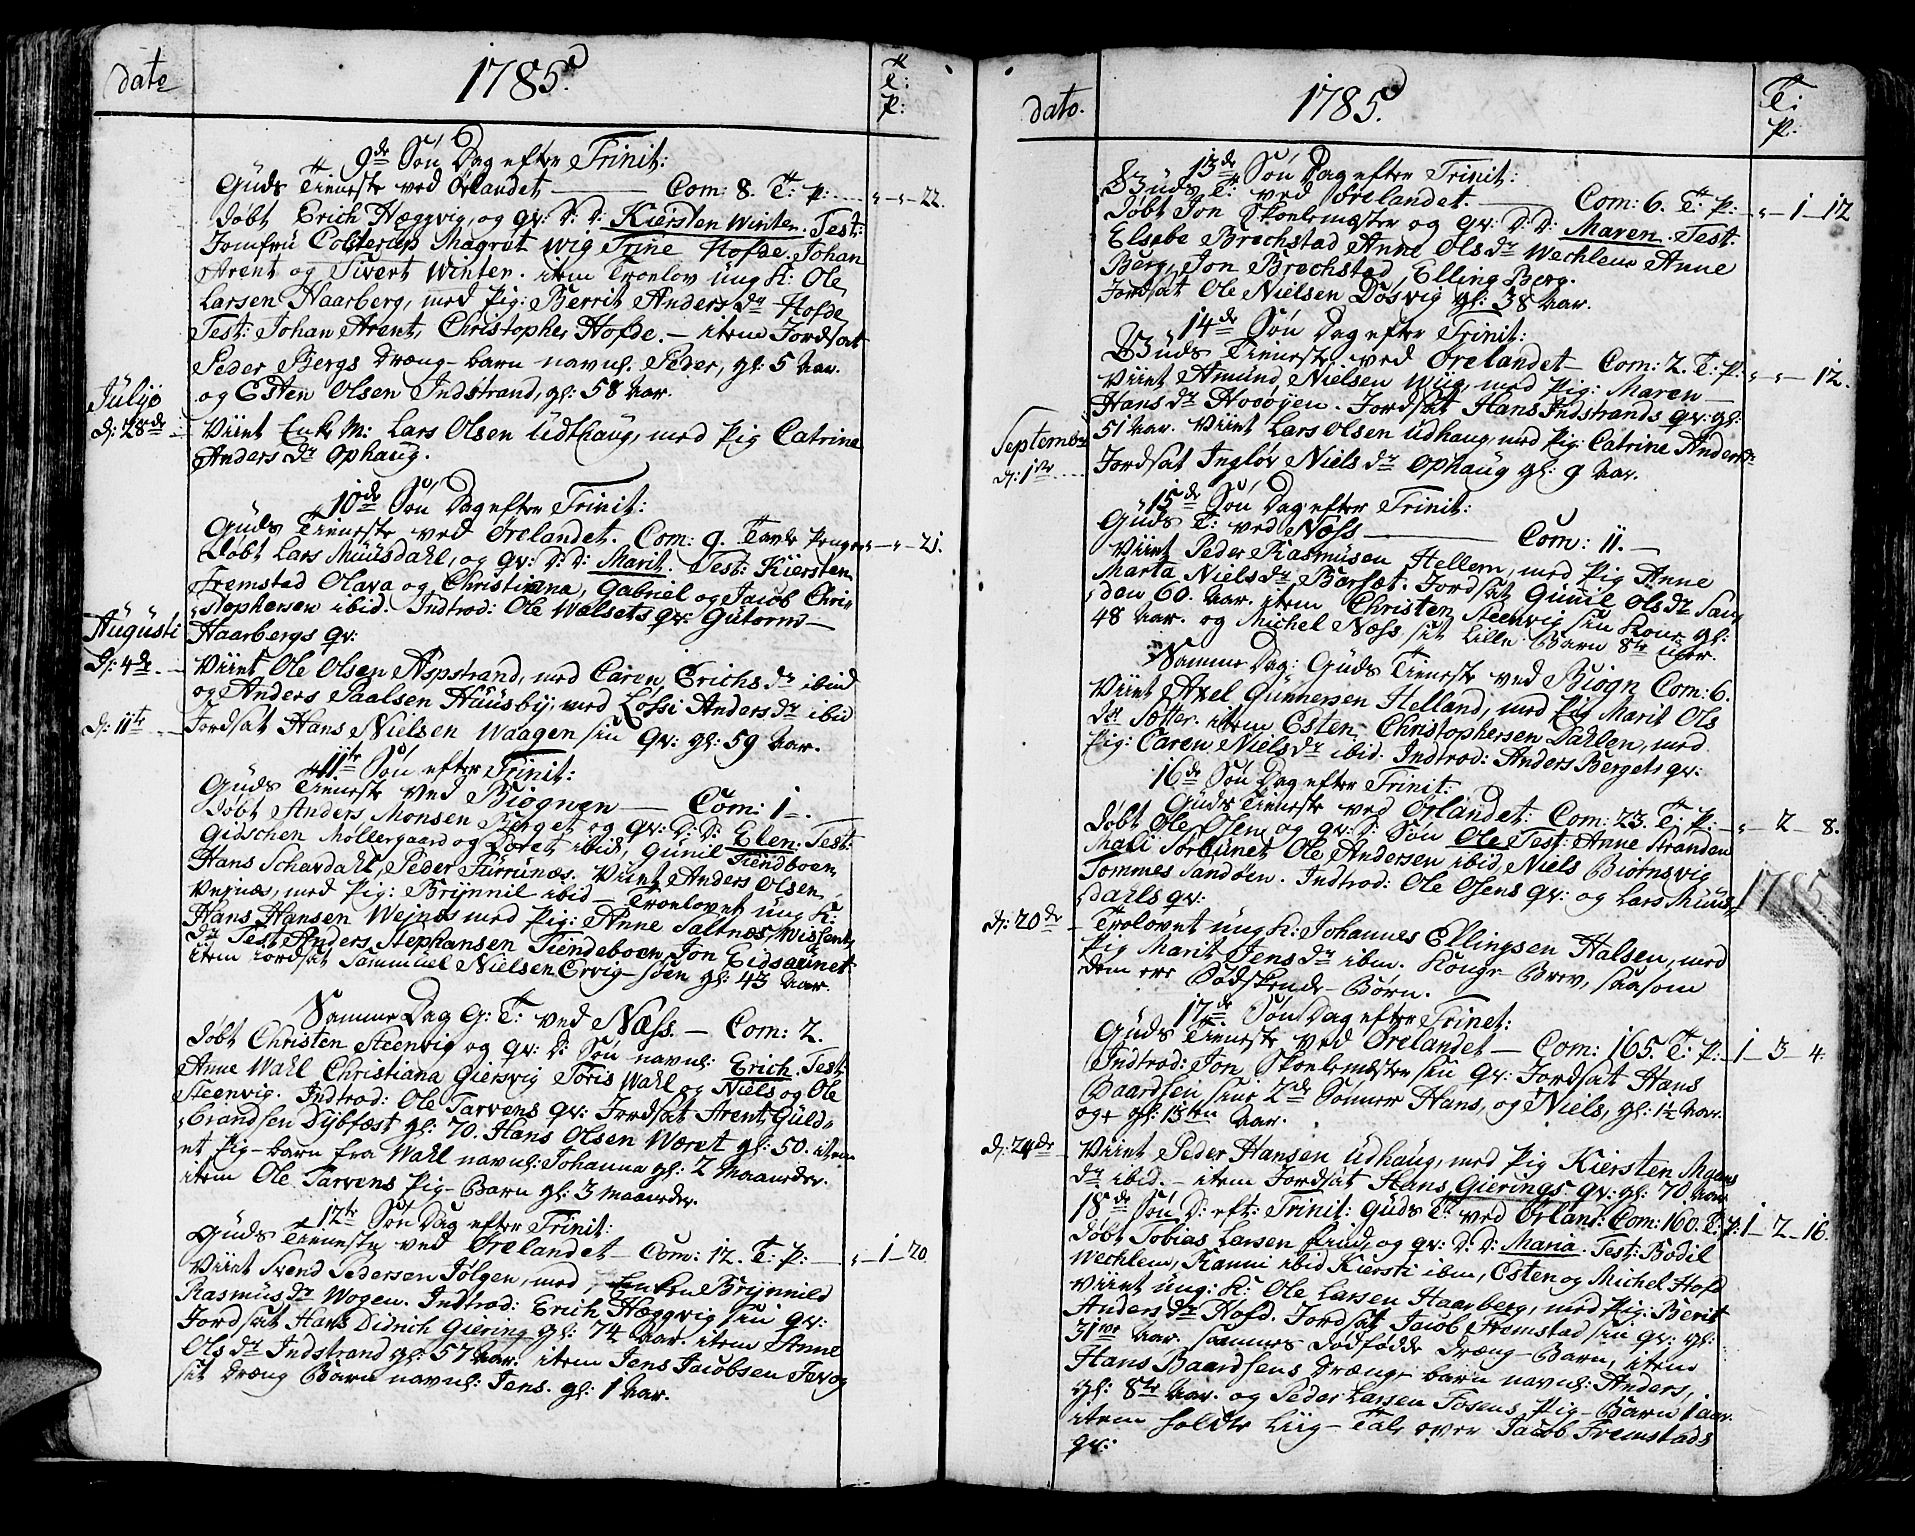 date
1785.
T:
P:
9de Søn Dag efter Trinit:
Guds Tieneste ved Ørlandet — Com: 8. T: P: — " — " — 22.
Døbt Erich Hæggvig, og qv: D: D: Kiersten Winter. Test:
Jomfru Magret Wig Trine Hofde. Johan
Arent og Sivert Winter. item Troelov ung K: Ole
Larsen Haarberg, med Pig: Berrit Anders dr Hofde
Test: Johan Arent, Christopher Hofde. — item Jordsat
Peder Bergs Dræng-barn navnl: Peder, gl: 5 Aar.
og Esten Olsen Indstrand, gl: 58 Aar.
Julyo
d: 28de
Viiet Enke M: Lars Olsen Udthaug, med Pig Catrine
Anders dr Ophaug.
10de Søn Dag efter Trinit:
Guds Tieneste ved Ørelandet. Com: 9. Tavle Penge — " — 21.
Døbt Lars Muusdahl, og qv: D: D: Marit. Test: Kiersten
Fremstad Olava og Christianna, Gabriel og Jacob Chri-
stophersen ibid. Indtrod: Ole Walsets qv: Gutorm
Haarbergs qv:
Augusti
d: 4de
Viiet Ole Olsen Aspstrand, med Caren Erichs dr ibid
og Anders Paalsen Huusby, med Lossi Anders dr ibid
d: 11te
Jordsat Hans Nielsen Waagen sin qv: gl: 59 Aar.
11te Søn efter Trinit:
Guds Tieneste ved Biognen — Com: 1 —.
Døbt Anders Monsen Berget og qv: D: D: Elen. Test:
Gidschen Møllergaard og Doret ibid, Gunil Tiendboen,
Hans Schavdahl, Peder Furrunæs. Viiet Anders Olsen
Vejnæs, med Pig: Brynnil ibid — Troelovet ung K:
Hans Hansen Wejnæs med Pig: Anne Saltnæs,
dr Test Anders Stephansen Tiendeboen, Jon Eidsaunet
item iordsat Sammuel Nielsen Ervig-søen gl: 43 Aar.
Samme Dag G: T: ved Næss. — Com: 2.
Døbt Christen Steenvig og qv: D: Søn navnl: Erich. Test:
Anne Wahl Christiana Giersvig Toris Wahl og Niels og Ole
Steenvig. Indtrod: Ole Tarvens qv: Jordsat Arent Guld-
brandsen Dybfæst gl: 70. Hans Olsen Wæret gl: 50. item
et Pig-barn fra Wahl navnl: Johanna gl: 2 Maaneder.
item Ole Tarvens Pig-Barn gl: 3 maaneder
12te Søn Dag efter Trinit:
Guds Tieneste ved Ørelandet — Com: 12. T: P: — " — 1 — 20.
Viiet Svend Pedersen Jølgen, med Enken Brynnild
Rasmus dr Wogen. Indtrod: Erich Hæggvig sin qv:
Jordsat Hans Didrich Giering gl: 74 Aar. item Anne
Ols dr Indstrand gl: 57 Aar. item Jens Jacobsen
sit Dræng Barn navnl: Jens. gl: 1 Aar.
dato.
1785.
T:
P.
13de Søn Dag efter Trinit:
Guds T: ved Ørelandet — Com: 6. T: P: " — 1 — 12
Døbt Jon Skolemæster og qv: D: D: Maren. Test:
Elsebe Brechstad Anne Ols dr Wechlem Anne
Berg, Jon Brechstad, Elling Berg.
Jordsat Ole Nielsen Døsvig gl: 38 Aar.
14de Søn Dag efter Trinit:
Guds Tieneste ved Ørelandet — Com: 2. T: P: " — " — 12.
Viiet Amund Nielsen Wiig, med Pig: Maren
Hans dr Hovøjen. Jordsat Hans Indstrands qv: gl:
51 Aar. Viiet Lars Olsen Udhaug, med Pig: Catrine Anders dr
September
d: 1ste
Jordsat Inglør Niels dr Ophaug gl: 9 Aar.
15de Søn Dag efter Trinit:
Guds T: ved Næss — Com: 11. —
Viiet Peder Rasmusen Hellem, med Pig Anne
Marta Niels dr Barsæt. Jordsat Gunil Ols dr San-
den 60. Aar. item Christen Steenvig sin Kone gl:
48 Aar. og Michel Næss sit Lille Barn 8te uger.
Samme Dag: Guds Tieneste ved Biogn Com: 6.
Viiet Axel Gunnersen Helland, med Pig Marit Ols
dr Sotter. item Esten Christophersen Dahlen, med
Pig: Caren Niels dr ibid. Indtrod: Anders Bergets qv:
16de Søn Dag efter Trinit:
Guds Tieneste ved Ørlandet: Com: 23. T: P: — " — 2 — 8.
Døbt Ole Olsen og qv: D: Søn Ole Test: Anne Stranden
Mali Ole Andersen ibid, Niels Biørnsvig
Tommes Sandøen. Indtrod: Ole Olsens qv: og Lars Muus-
dahls qv:
1785
d: 20de
Trolovet ung K: Johannes Ellingsen Halsen, med
Pig Marit Jens dr ibm. Konge-Brev, saasom
dem ere Sødskende-Børn.
17de Søn Dag efter Trinet:
Guds Tieneste ved Ørelandet — Com: 165. T: P: — 1 — 3 — 4.
Indtrod: Jon Skolemæster sin qv: Jordsat Hans
Baardsen sine 2de Sønner Hans, og Niels, gl: 1½ Aar.
og gl: 13ten Aar.
d: 24de
Viiet Peder Hansen Udhaug, med Pig Kiersten Mogens
dr ibid. — item Jordsat Hans Gierings qv: gl: 70 Aar
18de Søn D: eft: Trinit: Guds T: ved Ørland: Com: 160. T: P: 1 — 2 — 16.
Døbt Tobias Larsen Eiud, og qv: D: D: Maria. Test: Bodil
Wechlem, Kanni ibid Kiersti ibm, Esten og Michel Hofd
Viiet ung: K: Ole Larsen Haarberg, med Pig: Berit
Anders dr Hofd. Jordsat Jacob Fremstad sin qv: gl:
31 Aar. sammes Dødfødde Dræng-Barn, item
Hans Baardsens Dræng barn navnl: Anders,
gl: 8te Aar. og Peder Larsen Fosens Pig-Barn 1 aar.
item holdte Liig-Tale over Jacob Fremstads
qv: